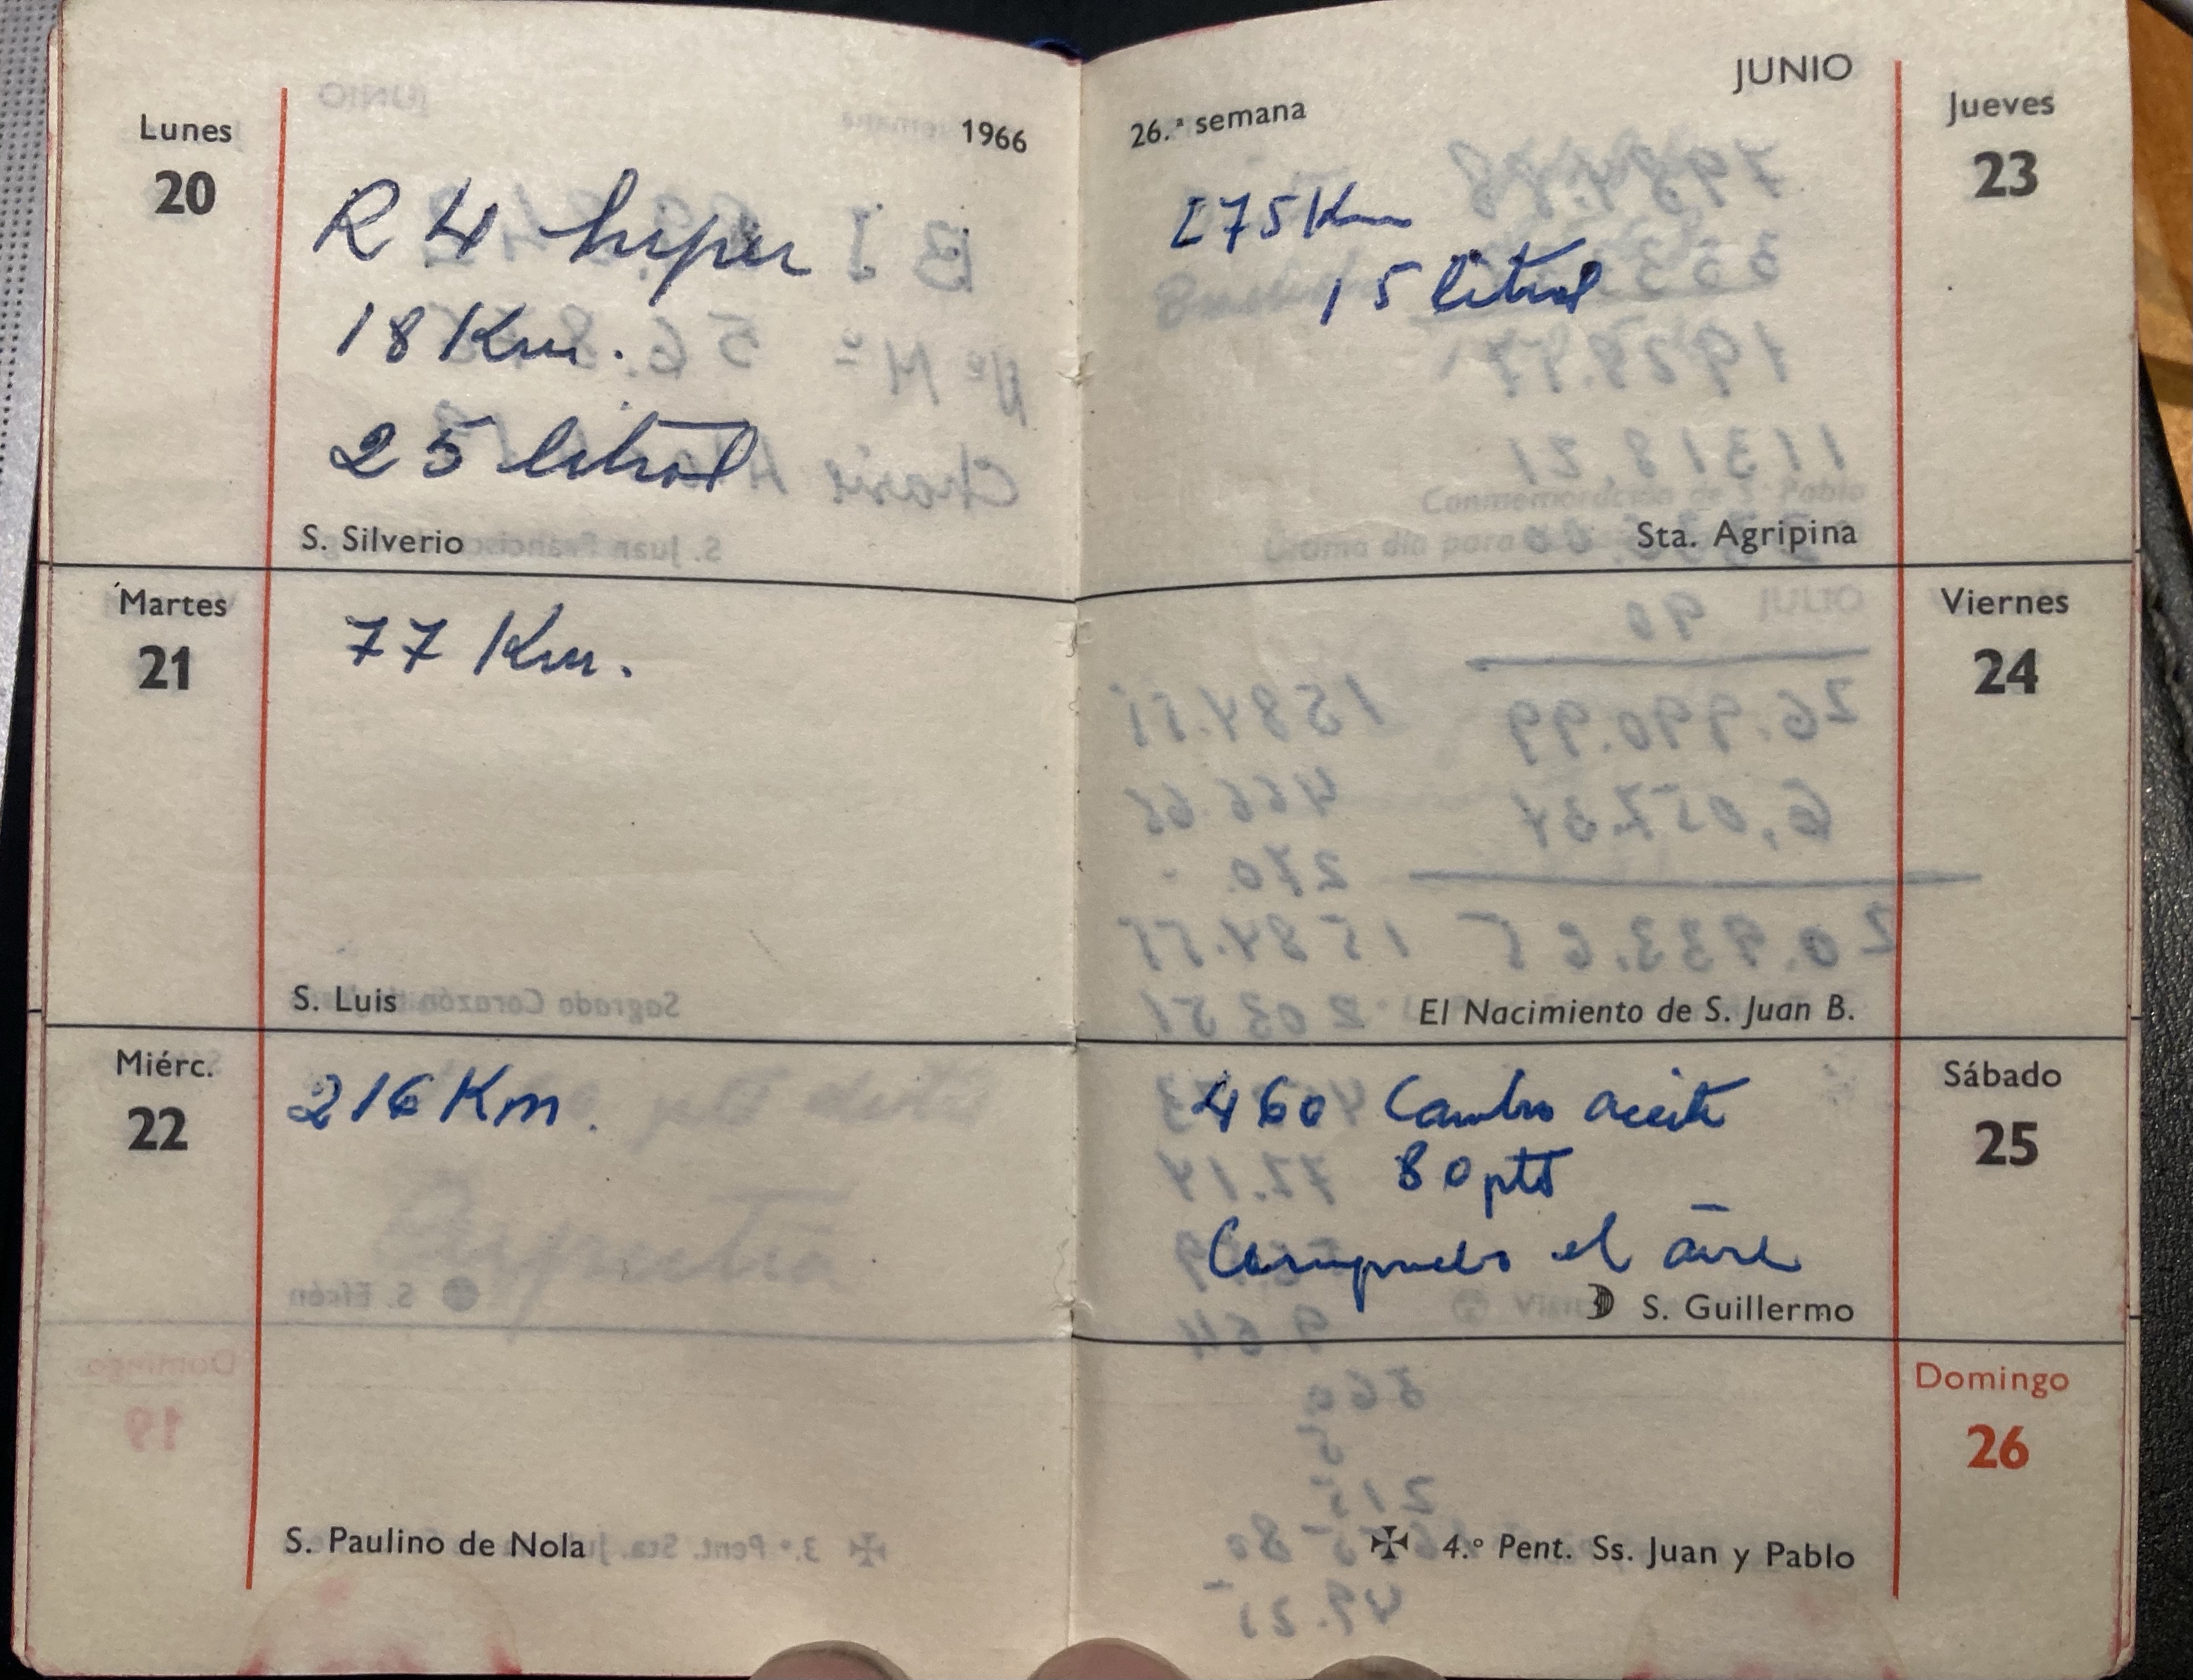 Lunes
20
1966
R 4 hiper
18 Km.
25 litros
S. Silverio
Martes
21
77 Km.
S. Luis
Miérc.
22
216 Km.
S. Paulino de Nola
JUNIO
26.ª semana
Jueves
23
275 Km
15 litros
Sta. Agripina
Viernes
24
El Nacimiento de S. Juan B.
Sábado
25
460 Cambio aceite
80 pts
Compruebo el aire
S. Guillermo
Domingo
26
4.º Pent. Ss. Juan y Pablo